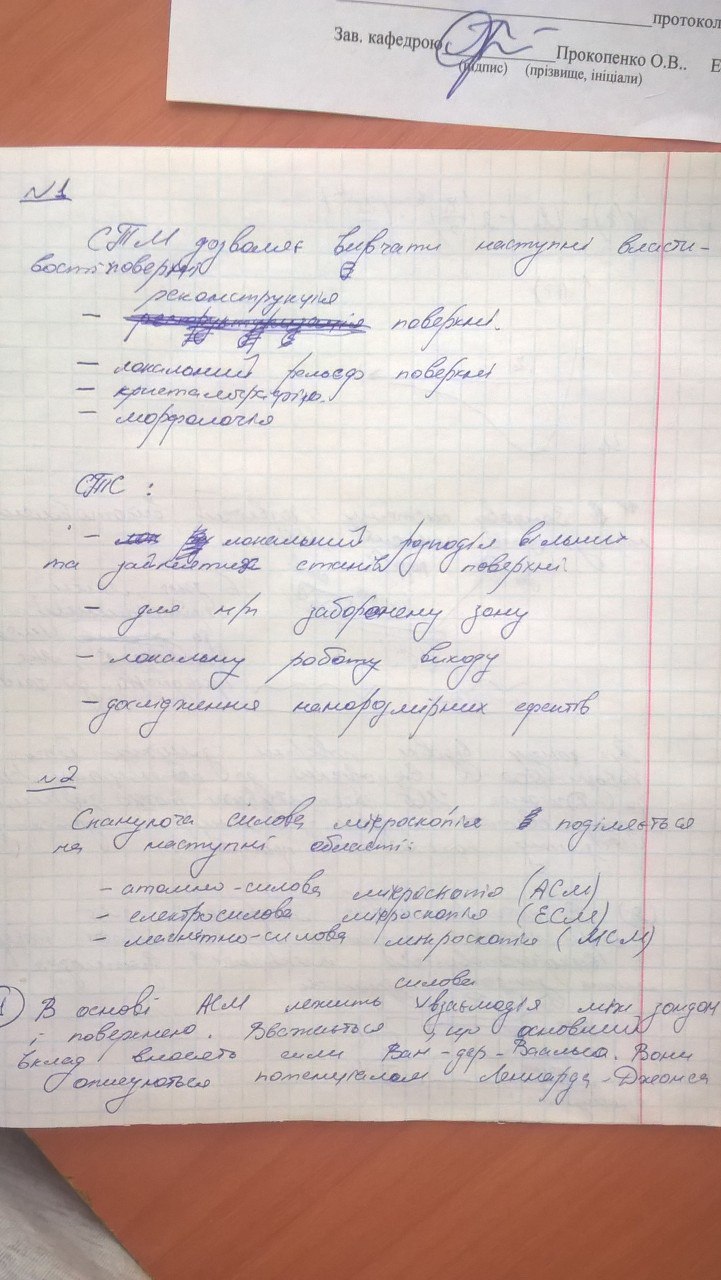 протокол
Зав. кафедрою Прокопенко О.В..
(підпис) (прізвище, ініціали)
№1
СТМ дозволяє вивчати наступні власти-
вості поверхні
реконструкція
- поверхні.
- локальний рельєф поверхні
- кристалографію.
- морфологія
СТС :
- локальний розподіл вільних
та зайнятих станів поверхні
- для н/п заборонену зону
- локальну роботу виходу
- дослідження нанорозмірних ефектів
№2
Скануюча силова мікроскопія поділяється
на наступні області:
- атомно-силова мікроскопія (АСМ)
- електросилова мікроскопія (ЕСМ)
- магнітно-силова мікроскопія (МСМ)
силова
1) В основі АСМ лежить взаємодія між зондом
і поверхнею. Вважається, що основний
вклад вносять сили Ван-дер-Ваальса. Вони
описуються потенціалом Леннарда-Джонса